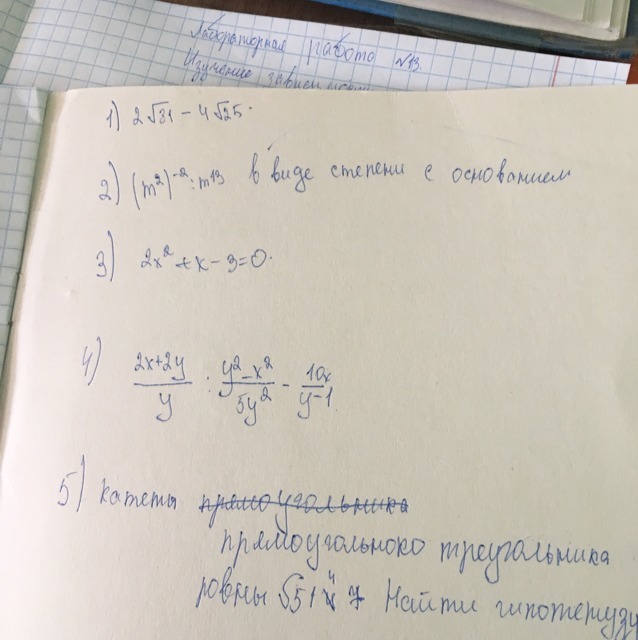 Лабораторная работа №13.
Изучение
1) 2√31 - 4√25.
2) (m²)⁻² : m¹³ в виде степени с основанием
3) 2x² + x - 3 = 0.
4) (2x+2y)/y : (y²-x²)/(5y²) - 10x/(y-1)
5) катеты прямоугольника
прямоугольноко треугольника
ровны √51 и 7 Найти гипотетузу